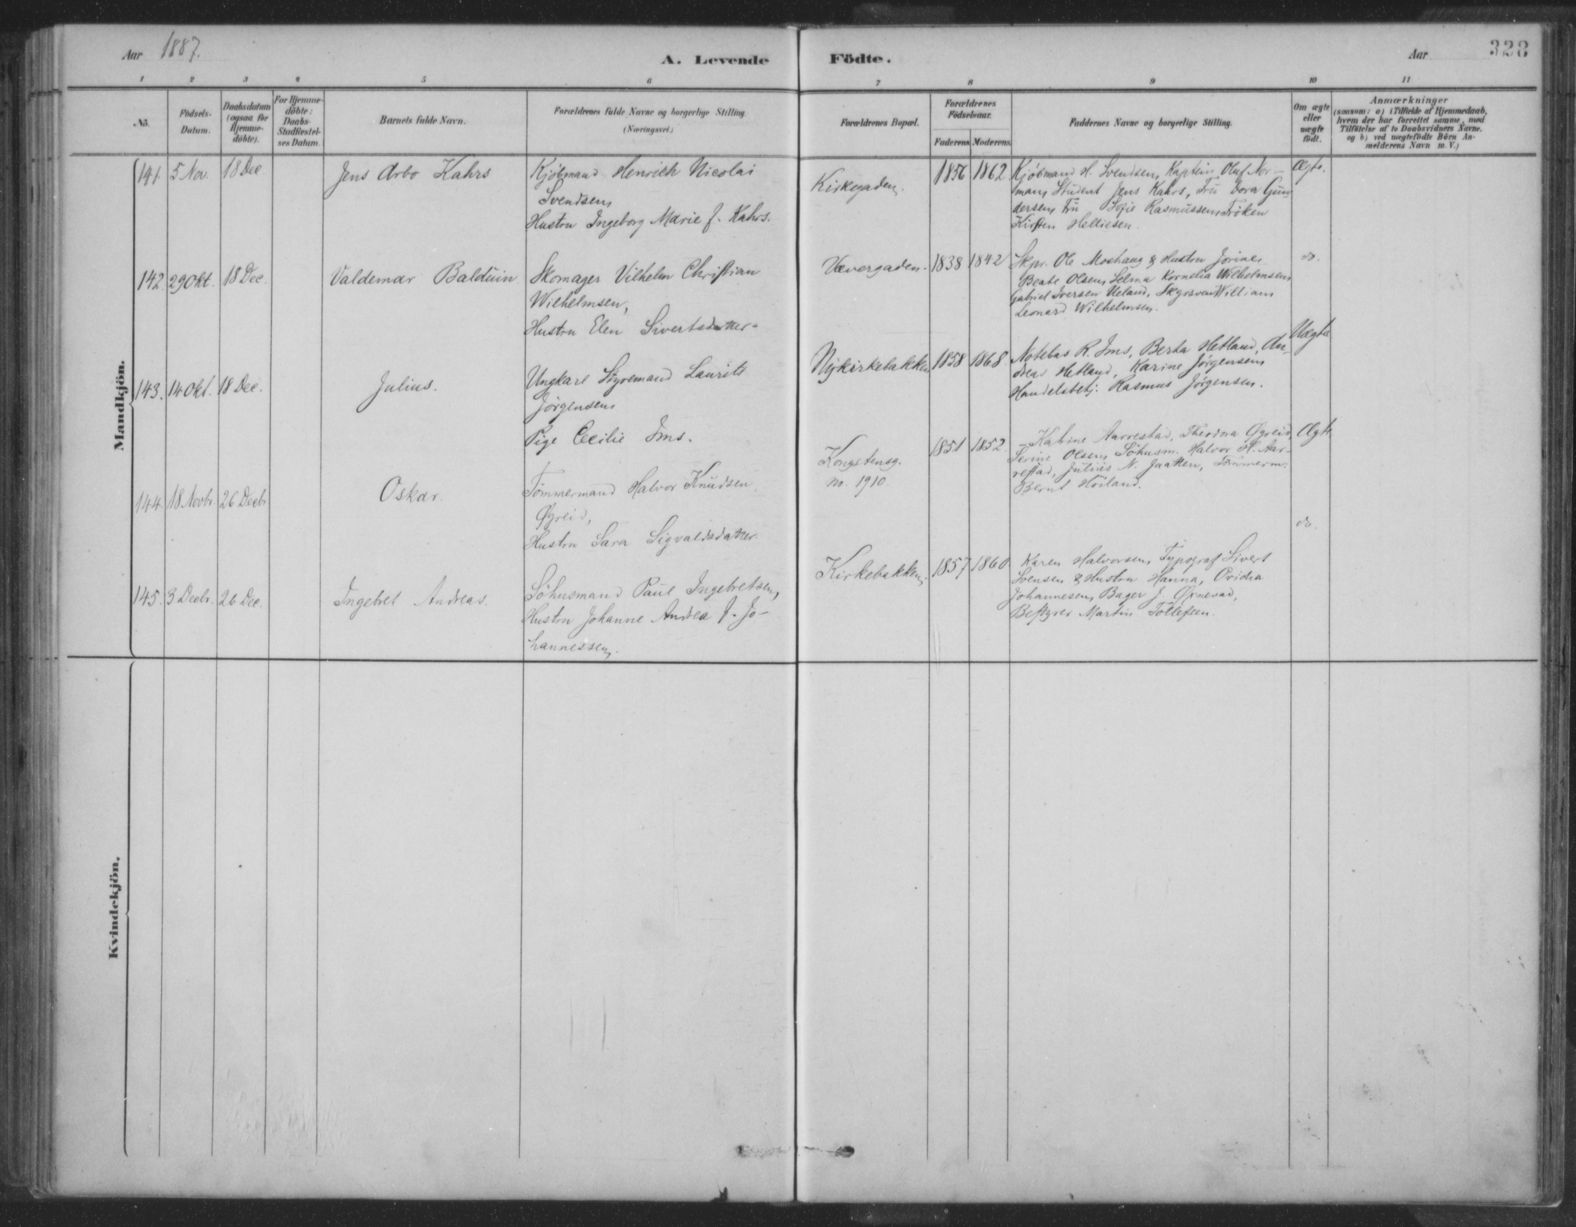 Aar 1887.
A. Levende Födte.
Aar
328
1 2 3 4 5 6 7 8 9 10 11
No.
Födsels-Datum.
Daabsdatum (ogsaa for Hjemme-döbte).
For Hjemme-döbte: Daabs-Stadfæstel-ses Datum.
Barnets fulde Navn.
Forældrenes fulde Navne og borgerlige Stilling. (Næringsvei.)
Forældrenes Bopæl.
Forældrenes Födselsaar.
Faderens Moderens
Faddernes Navne og borgerlige Stilling.
Om ægte eller uægte födt.
Anmærkninger
(saasom: a) i Tilfælde af Hjemmedaab, hvem der har forrettet samme, med Tilföielse af to Daabsvidners Navne, og b) ved uægtefödte Börn An-melderens Navn m. V.)
Mandkjön.
141. 5 Nov. 18 Dec.
Jens Arbo Kahrs
Kjöbmand Henrich Nicolai
Svendsen,
Hustru Ingeborg Marie f. Kahrs.
Kirkegaden.
1856 1862
Kjöbmand H. Svendsen, Kaptein Oluf Nor-
man, Student Jens Kahrs, Fru Dora Gun-
dersen, Fru Sofie Rasmussen, Fröken
Kirsten Helliesen.
Ægte.
142 29 Okt. 18 Dec.
Valdemar Balduin
Skomager Vilhelm Christian
Wilhelmsen,
Hustru Elen Sivertsdatter.
Vævergaden.
1838 1842
Skpr. Ole Moshaug & Hustru Jorine,
Beate Olsen, Selma Kornelia Wilhelmsen
Gabriel Iversen Ueland, William
Leonard Wilhelmsen.
do.
143. 14 Okt. 18 Dec.
Julius.
Ungkarl Styrmand Laurits
Jörgensen
Pige Cecilie Ims.
Nykirkebakken
1858 1868
R. Ims, Berta Hetland, An-
dreas Hetland, Karine Jörgensen
Handelsbetj. Rasmus Jörgensen.
Uægte
144. 18 Novbr. 26 Decb.
Oskar
Tömmermand Halvor Knudsen
Øgreid,
Hustru Sara Sigvaldsdatter.
Kongstensg.
no. 1910.
1851 1852.
Aarrestad, Theodora Øgreid,
Serine Olsen, Söhusm. Halvor H. Aar-
restad, Julius N. Jaatten, Tömmerm.
Bernt Höiland.
Ægte.
145. 3 Decbr. 26 Dec.
Ingebret Andreas.
Söhusmand Paul Ingebretsen,
Hustru Johanne Andrea f. Jo-
hannessen.
Kirkebakken.
1857 1860.
Karen Halvorsen, Typograf Sivert
Svensen & Hustru Hanna, Ovidia
Johannesen, Bager J. Øxnevad,
Bestyrer Martin Tollefsen.
do.
Kvindekjön.